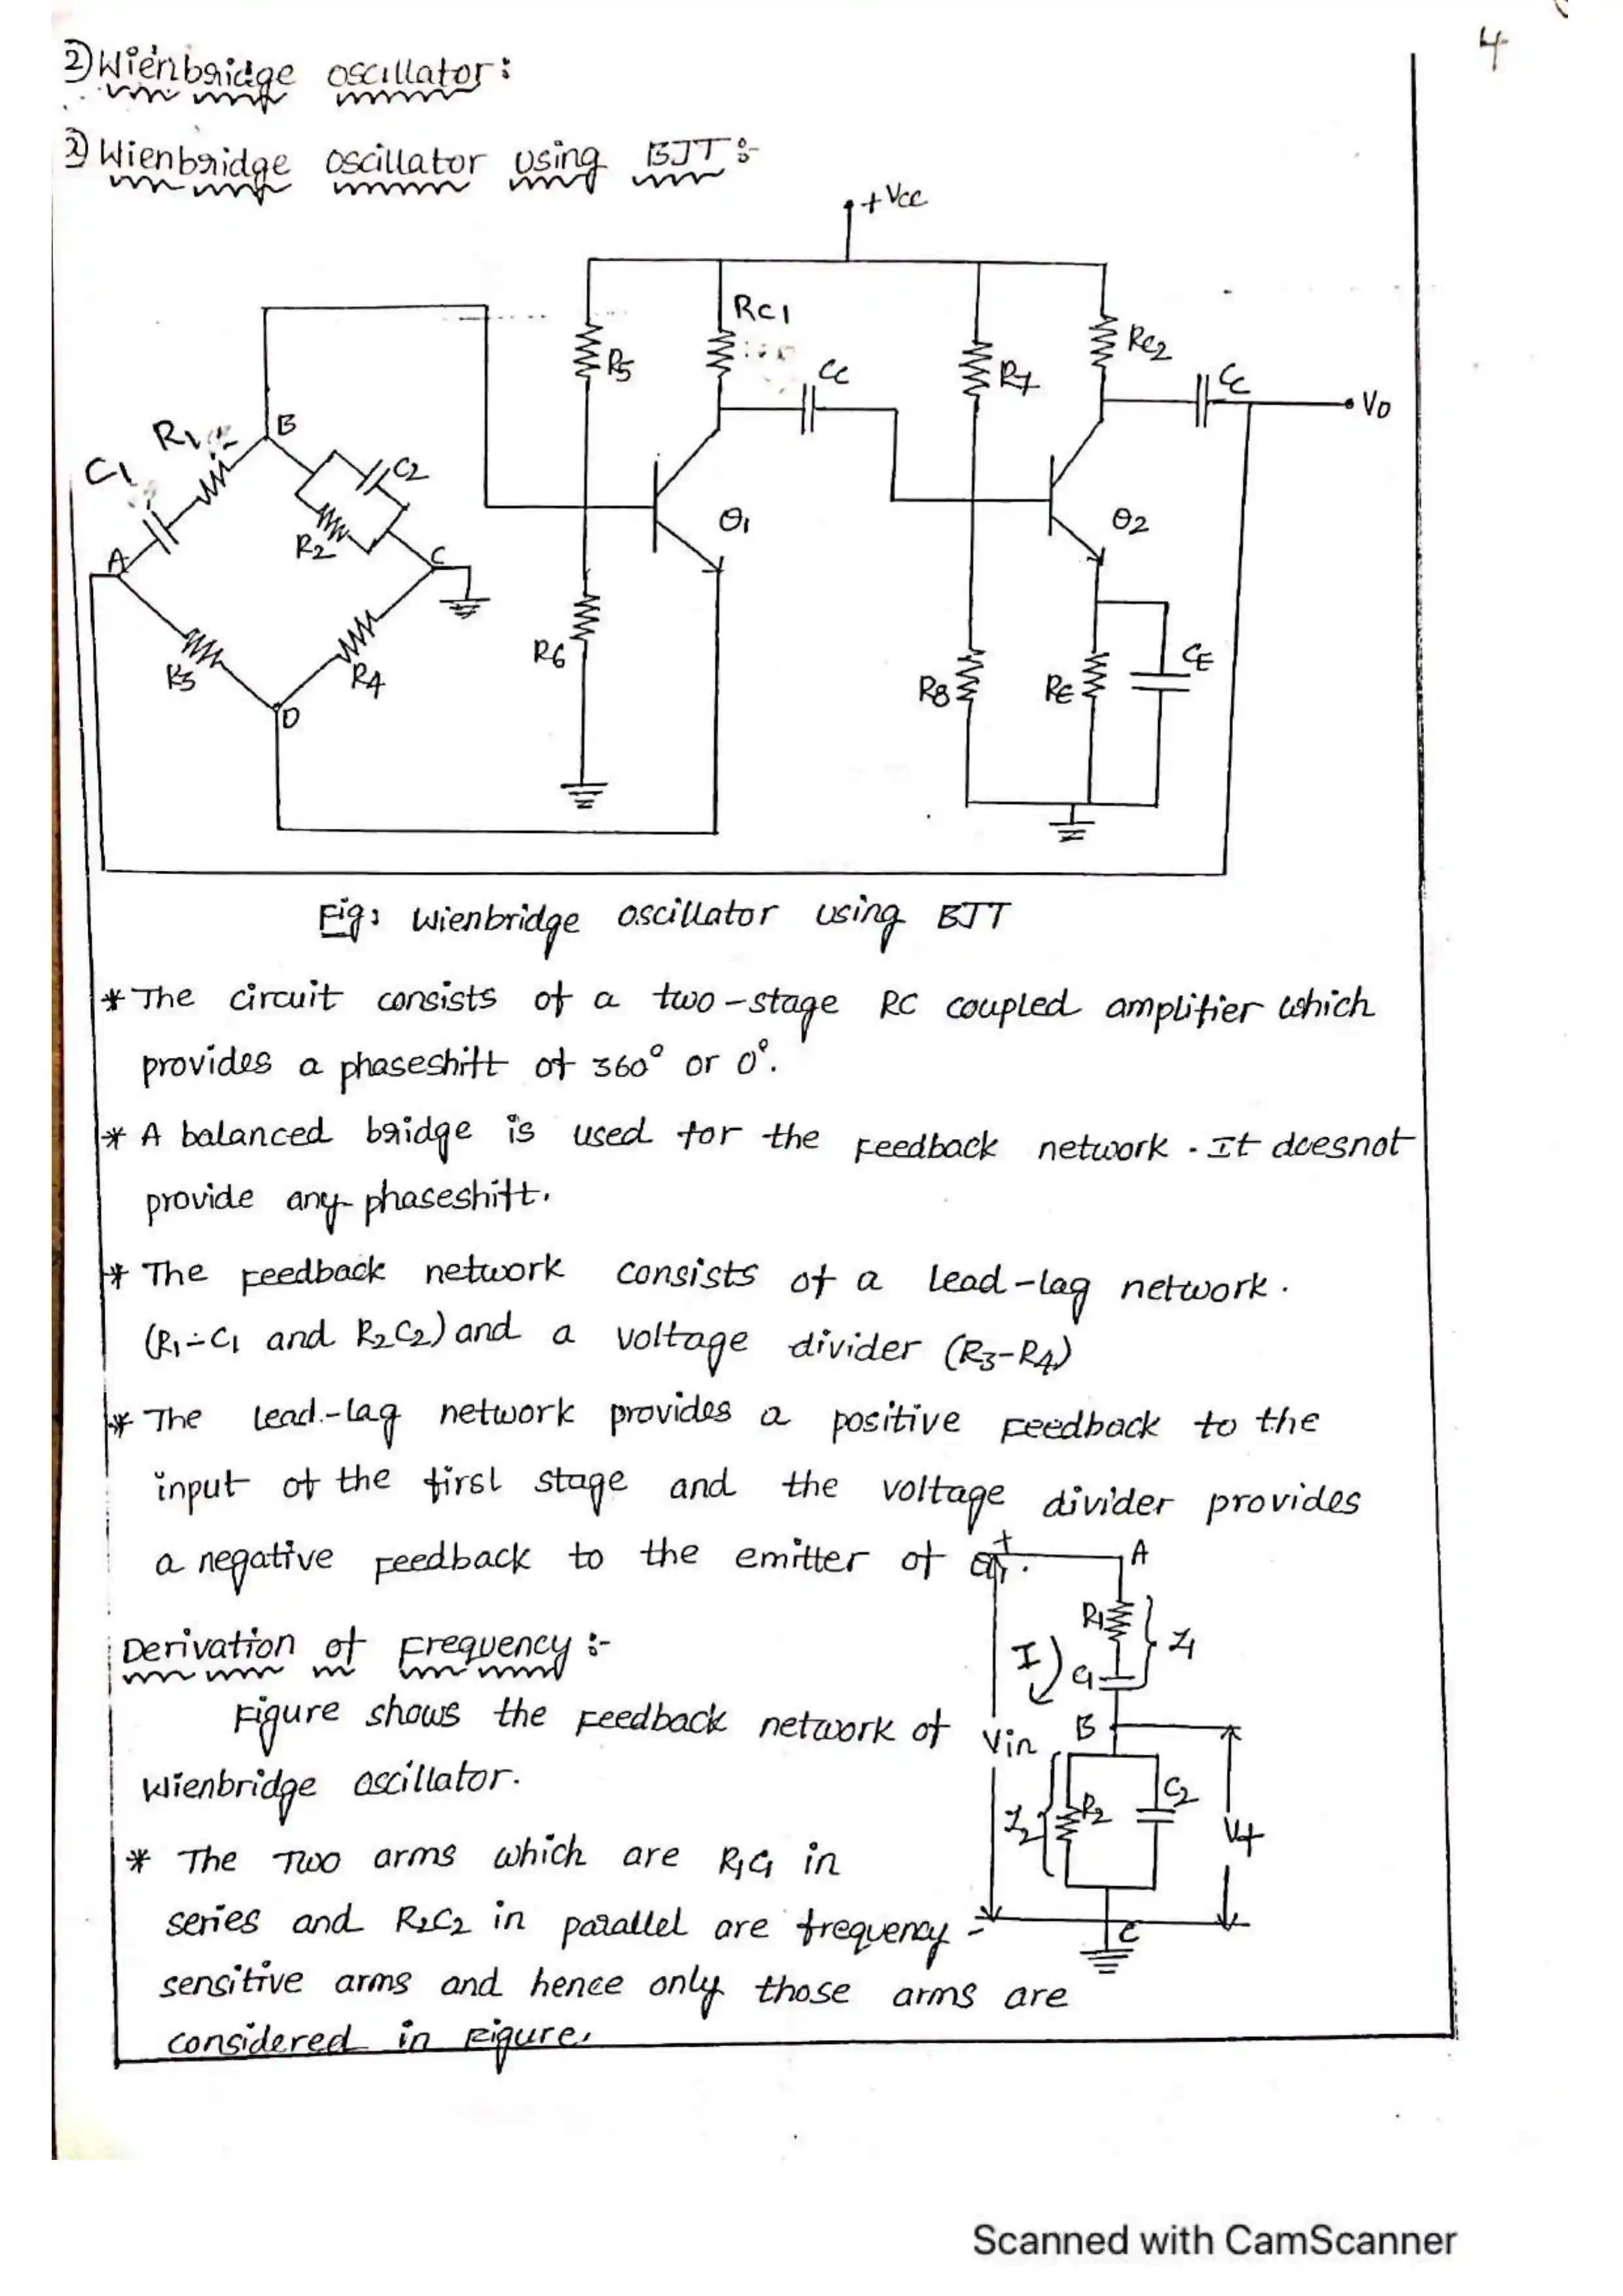 4
2) Wienbridge oscillator:
2) Wienbridge oscillator using BJT :-
+Vcc
Rc1
R5
Cc
R7
Rc2
Cc
Vo
B
R1
C1
C2
R2
A
C
Q1
Q2
R3
R4
D
R6
R8
RE
CE
Fig: Wienbridge oscillator using BJT
* The circuit consists of a two-stage RC coupled amplifier which
provides a phaseshift of 360° or 0°.
* A balanced bridge is used for the Feedback network. It doesnot
provide any phaseshift.
* The Feedback network consists of a lead-lag network.
(R1-C1 and R2C2) and a voltage divider (R3-R4)
* The lead-lag network provides a positive Feedback to the
input of the first stage and the voltage divider provides
a negative Feedback to the emitter of Q1.
+
A
R1
Z1
I
C1
Derivation of Frequency :-
Figure shows the Feedback network of
Wienbridge oscillator.
Vin
B
Z2
R2
C2
Vf
-
C
* The Two arms which are R1C1 in
series and R2C2 in parallel are frequency
sensitive arms and hence only those arms are
considered in Figure.
Scanned with CamScanner